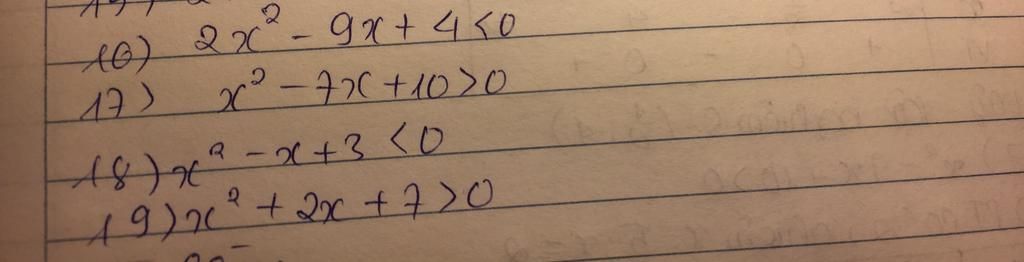 16) 2x² - 9x + 4 < 0
17) x² - 7x + 10 > 0
18) x² - x + 3 < 0
19) x² + 2x + 7 > 0